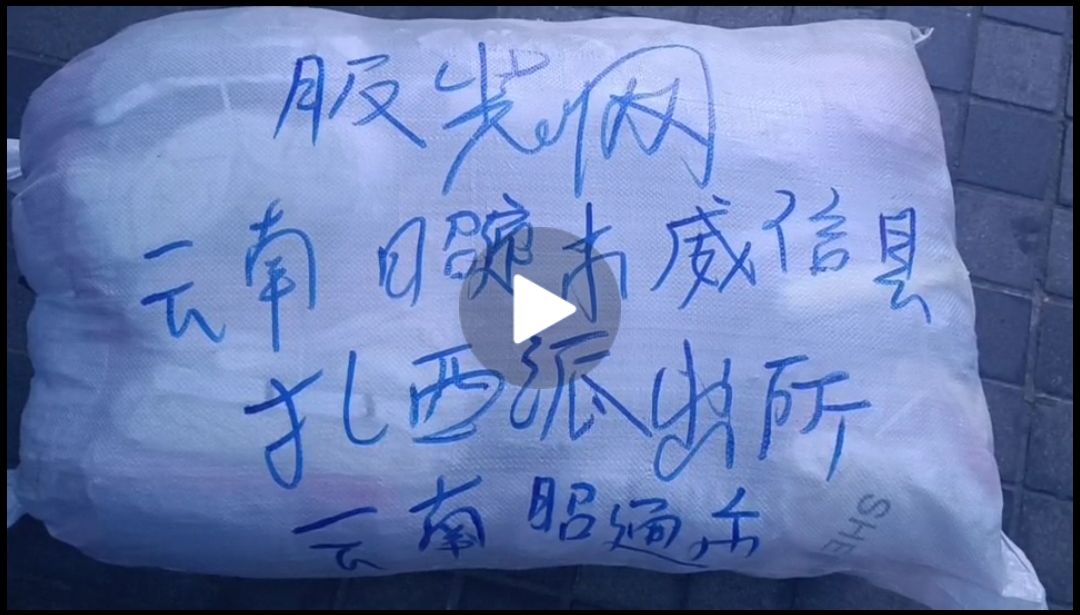 服装网
云南 昭通市威信县
扎西派出所
云南昭通市
SHE